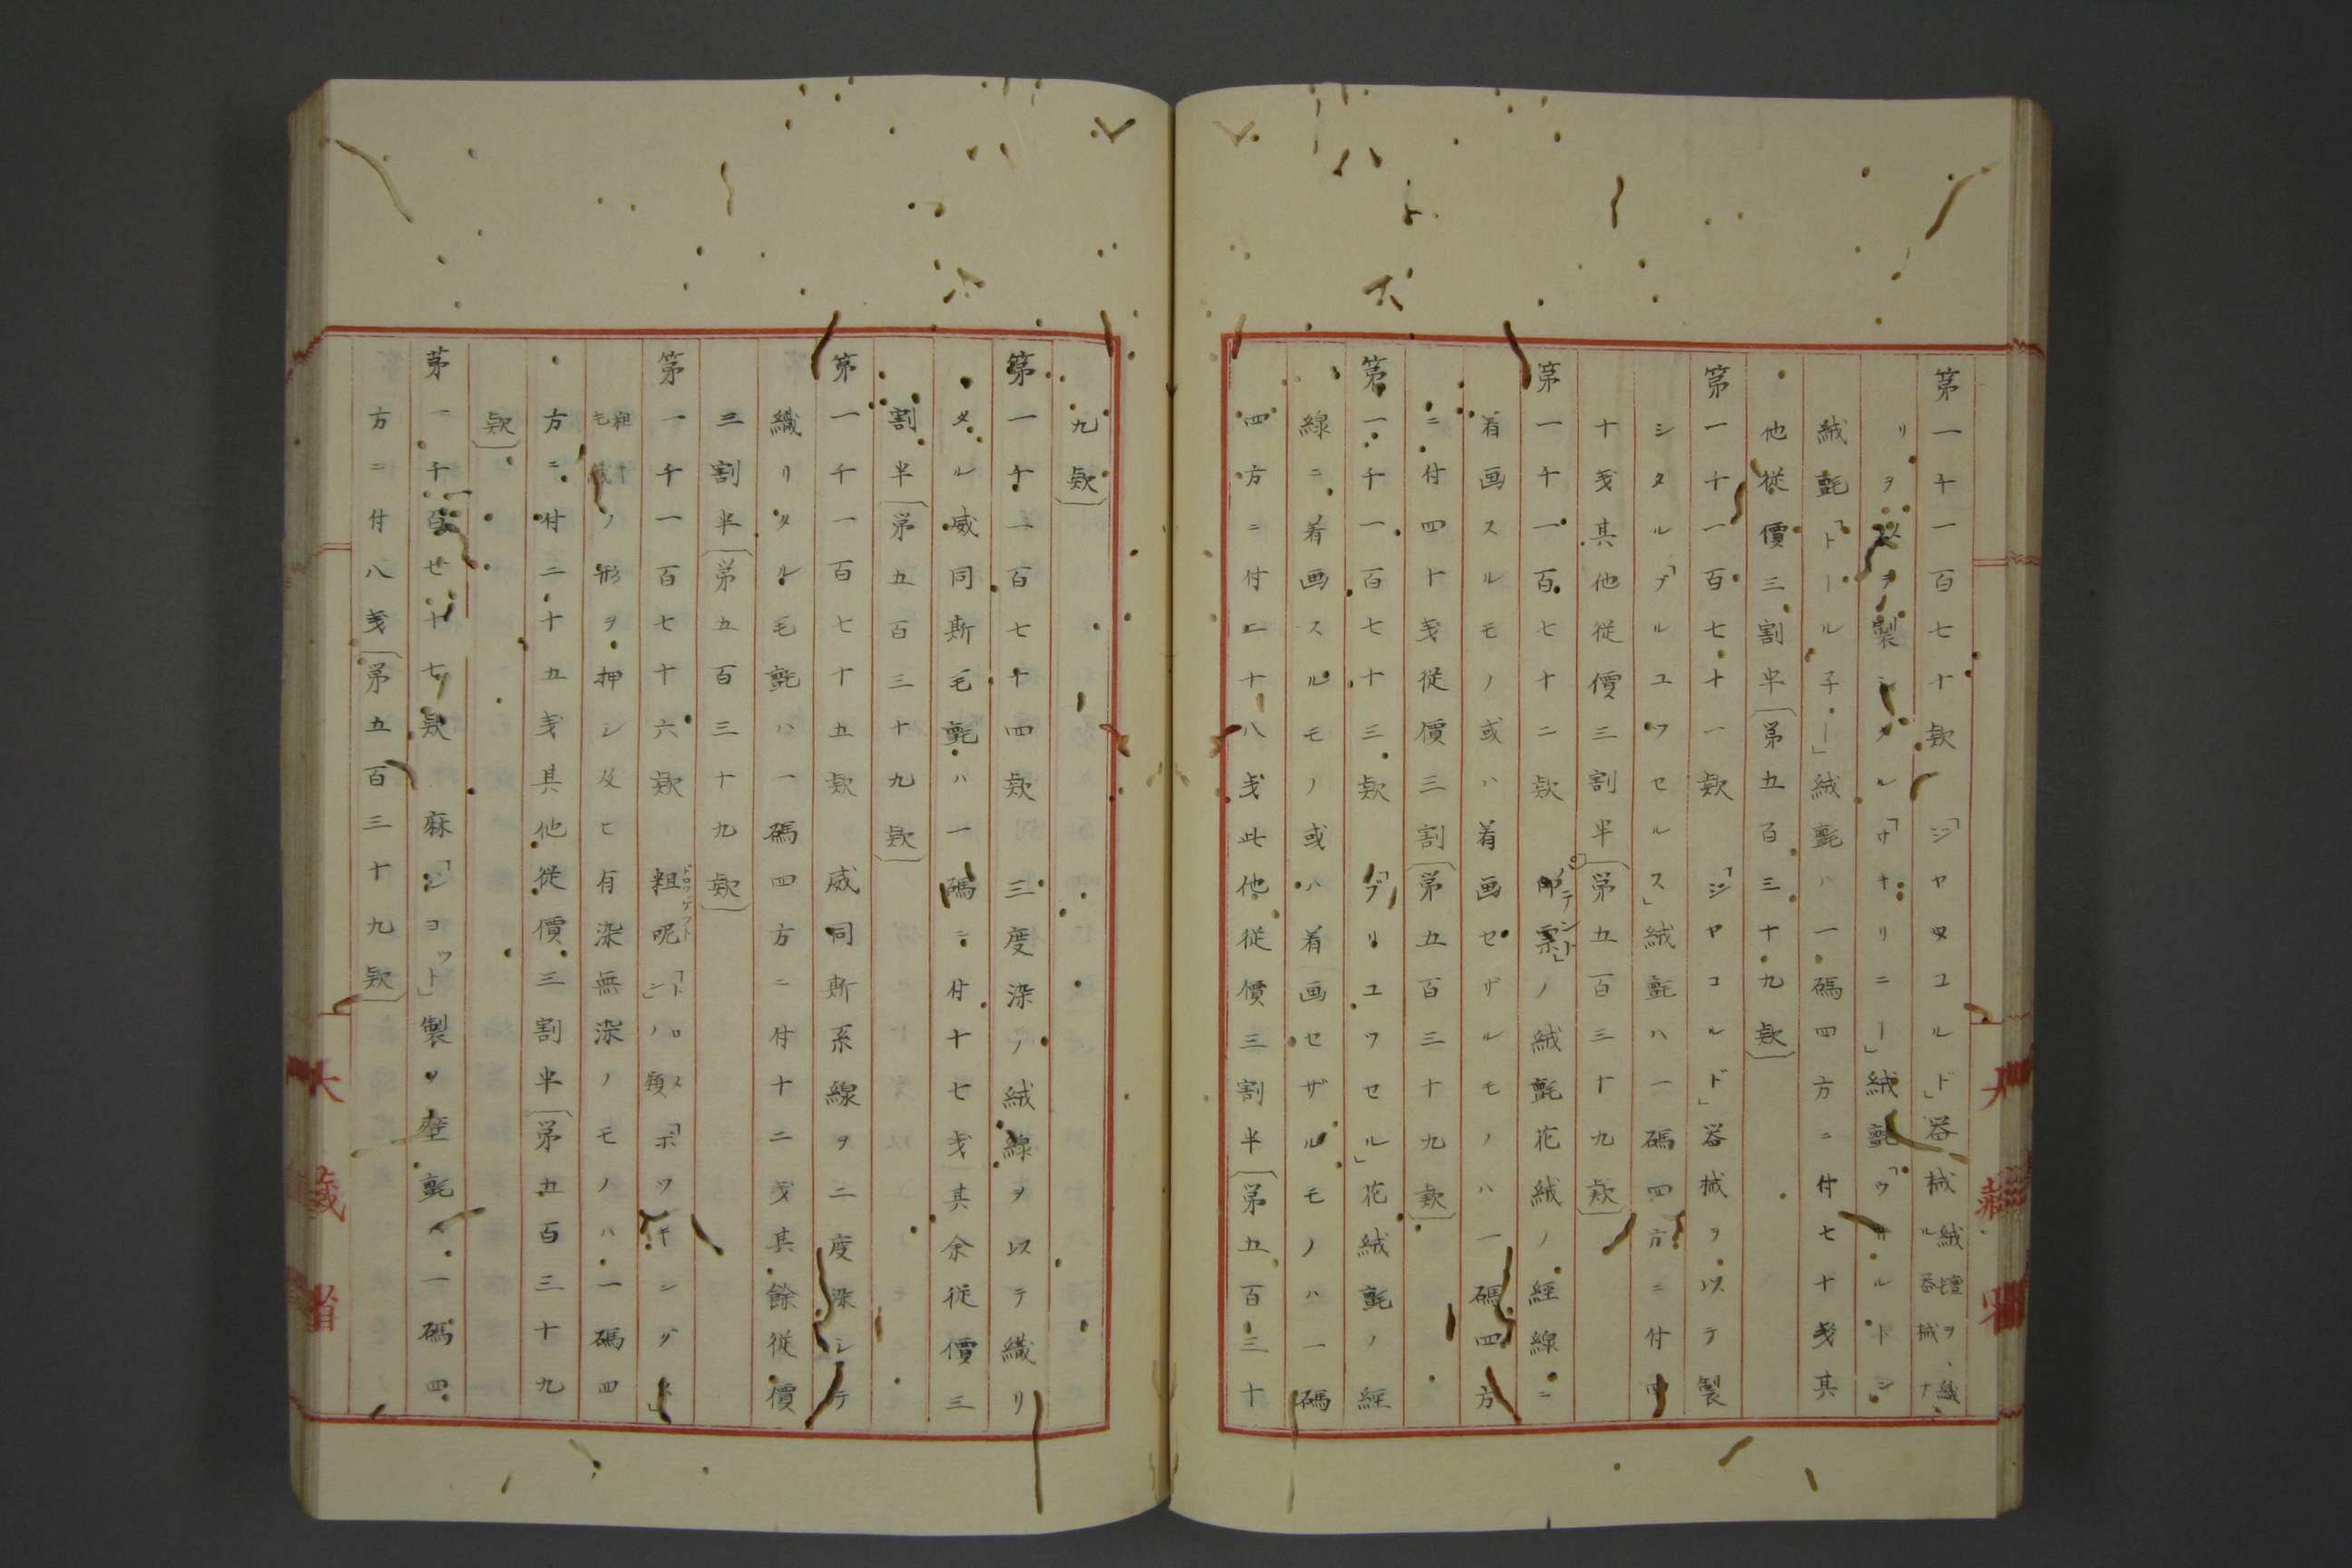 第一千一百七十欵 「ジヤヌコルド」器械絨氊ヲ織ル器械ナ
リヲ以テ製シタル「サナリニー」絨氊「ウサルトン」
絨氊「トール子ー」絨氊ハ一碼四方ニ付七十戔其
他從價三割半〔第五百三十九欵〕
第一千一百七十一欵 「ジヤコルド」器械ヲ以テ製
シタル「ブルユツセルス」絨氊ハ一碼四方ニ付四
十戔其他從價三割半〔第五百三十九欵〕
第一千一百七十二欵 ノ絨氊花絨ノ經線ニ
着画スルモノ或ハ着画セザルモノハ一碼四方
ニ付四十戔從價三割〔第五百三十九欵〕
第一千一百七十三欵 「ブリユツセル」花絨氊ノ經
線ニ着画スルモノ或ハ着画セザルモノハ一碼
四方ニ付二十八戔此他從價三割半〔第五百三十
九欵〕
第一千一百七十四欵 三度染ノ絨線ヲ以テ織リ
タル威同斯毛氊ハ一碼ニ付十七戔其余從價三
割半〔第五百三十九欵〕
第一千一百七十五欵 威同斯系線ヲ二度染シテ
織リタル毛氊ハ一碼四方ニ付十二戔其餘從價
三割半〔第五百三十九欵〕
第一千一百七十六欵 粗呢
ノ形ヲ押シ及ヒ有染無染ノモノハ一碼四
方ニ付二十五戔其他從價三割半〔第五百三十九
欵〕
第一千百七十七欵 麻「ジヨツト」製ノ座氊ハ一碼四
方ニ付八戔〔第五百三十九欵〕
大藏省